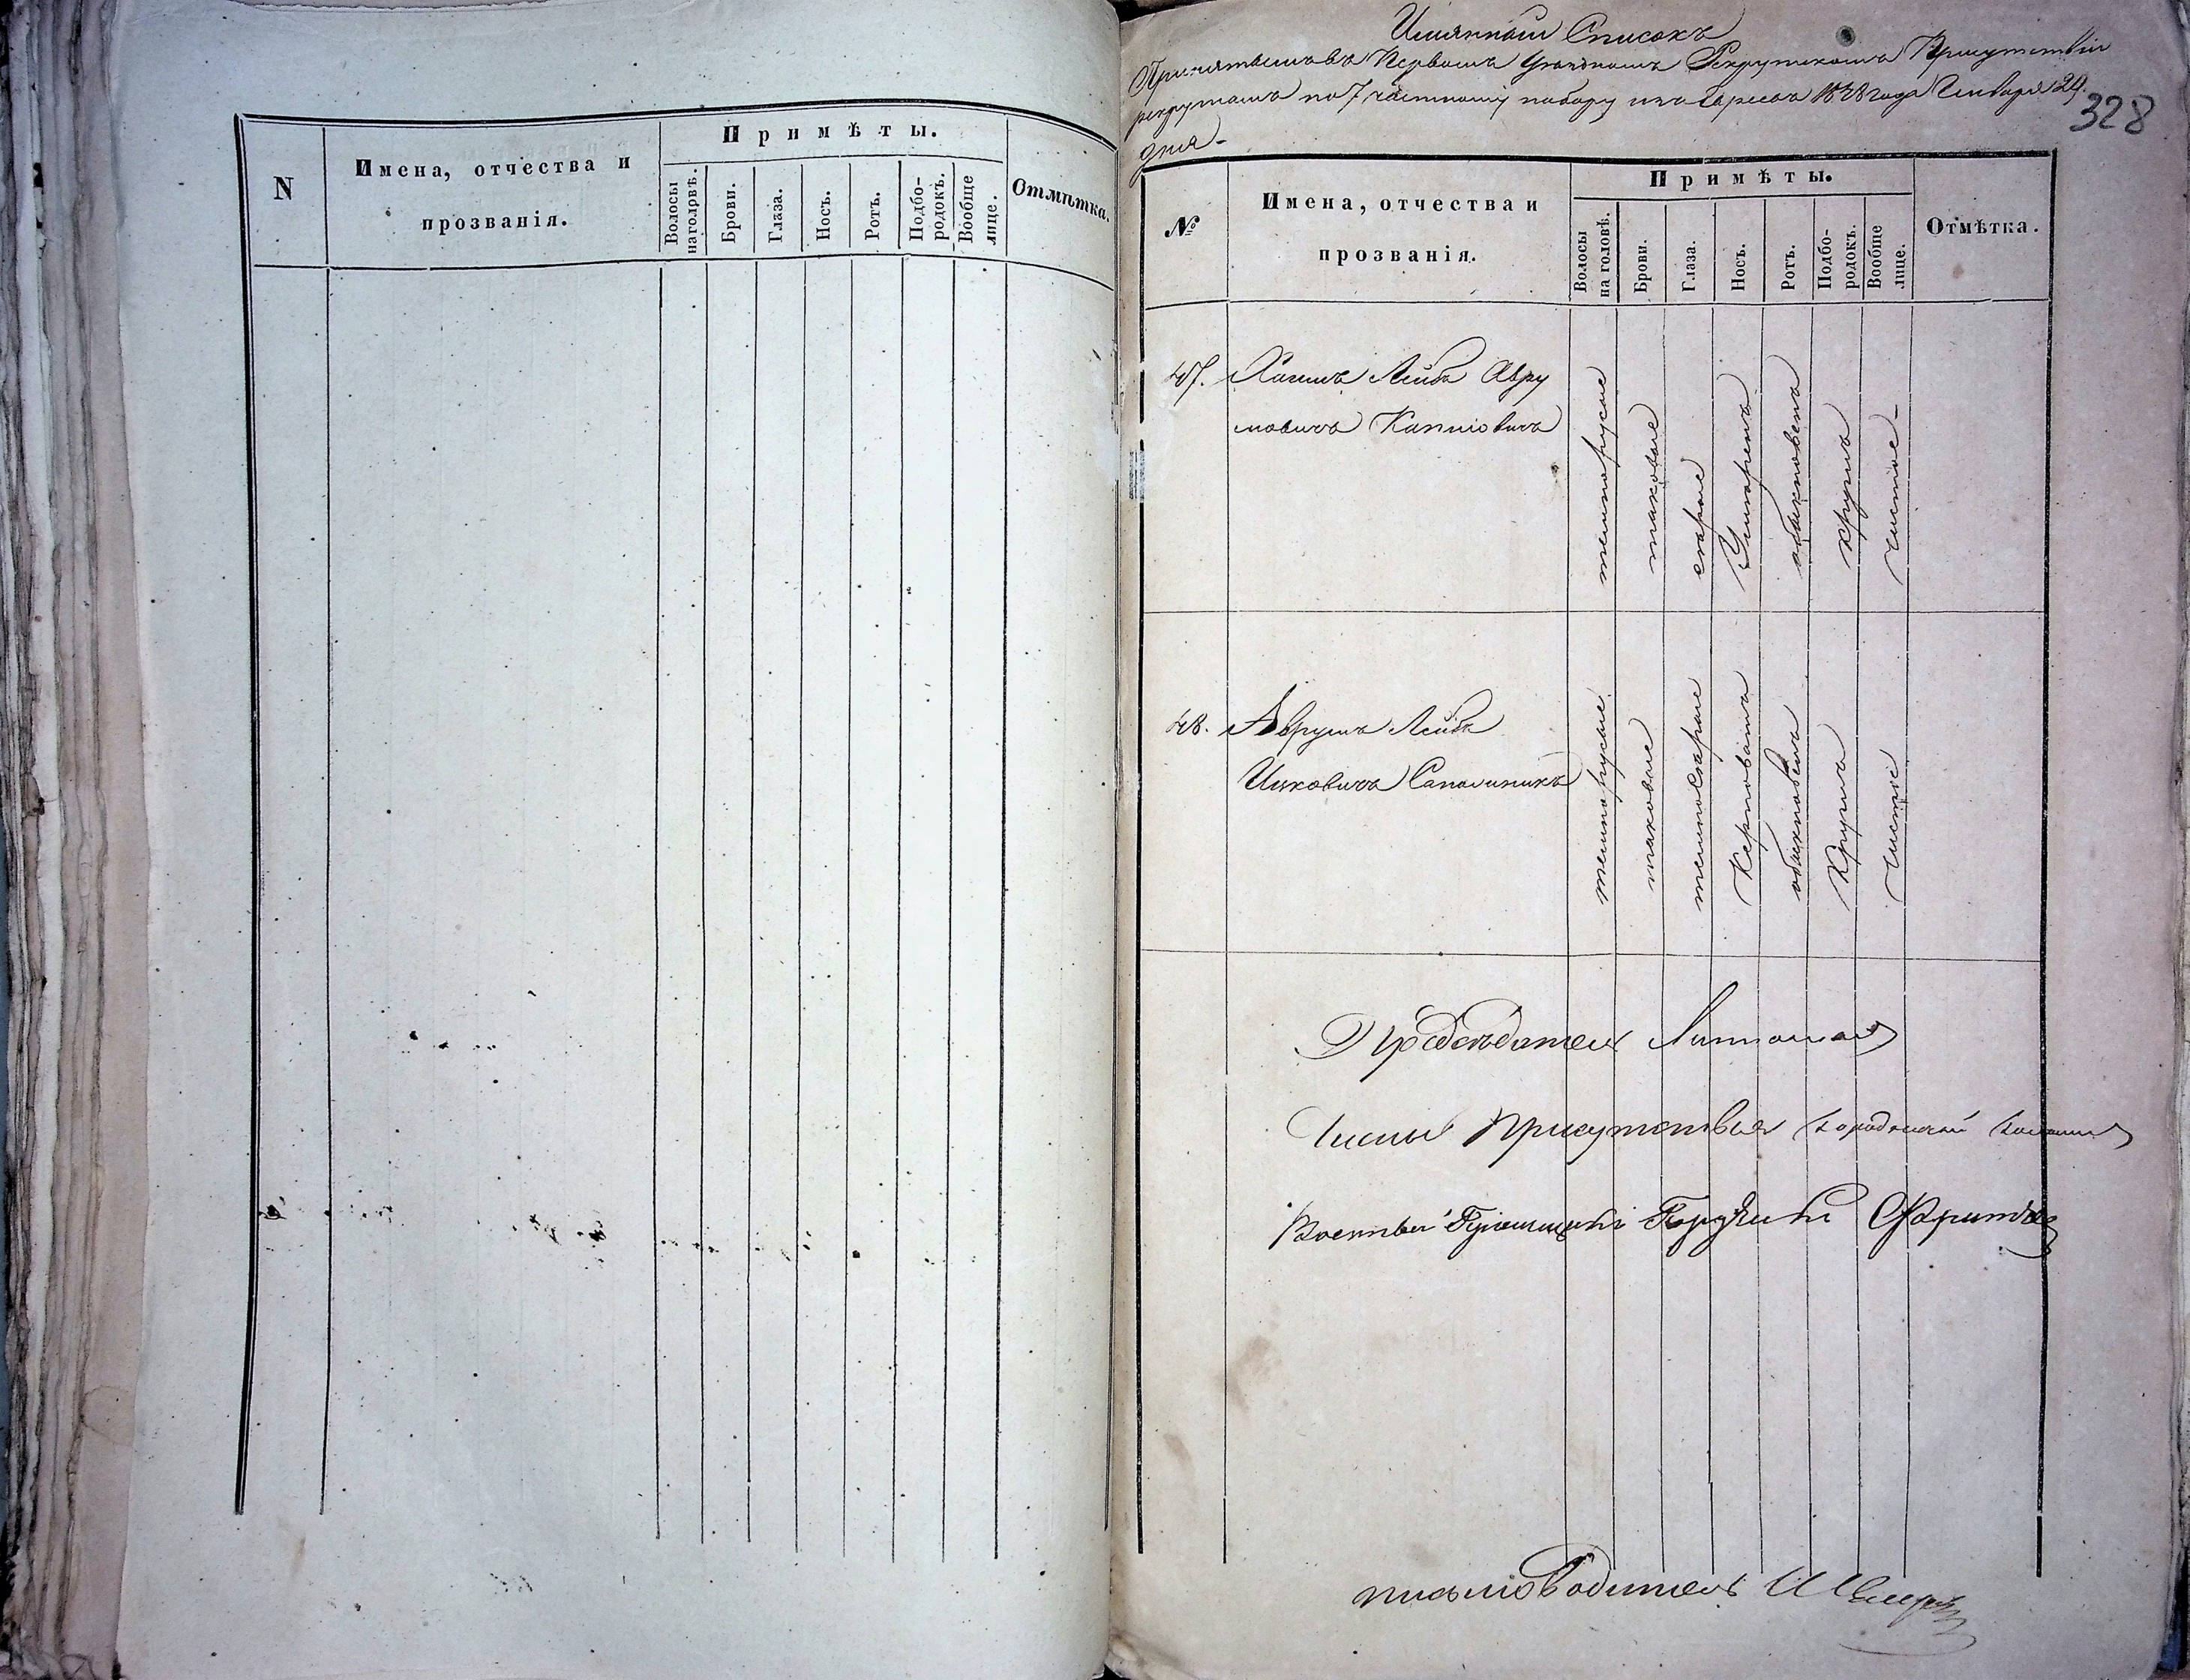 N
Имена, отчества и
прозванія.
Примѣты.
Волосы
на голрвѣ.
Брови.
Глаза.
Носъ.
Ротъ.
Подбо-
родокъ.
Вообще
лице.
Отмѣтка.
Имянной Списокъ
Принятымъ въ Первомъ Рекрутскомъ Присутствіи
рекрутамъ по 7 частному набору изъ Евреевъ года Генваря 29.
дня
328
№
Имена, отчества и
прозванія.
Примѣты.
Волосы
на головѣ.
Брови.
Глаза.
Носъ.
Ротъ.
Подбо-
родокъ.
Вообще
лице.
Отмѣтка.
47.
Хаимъ Лейба Авру
мовичъ
темнорусые
таковые
серые
Умѣренъ
обыкновенъ
круглъ
чистое
48.
Аврумъ Лейба
Ицковичъ
темнорусые
таковые
темносерые
Керповатъ
обыкновенъ
Круглъ
Чистое
Предсѣдатель
Члены Присутствія Городничій
Военный Пріемщикъ
письмоводитель